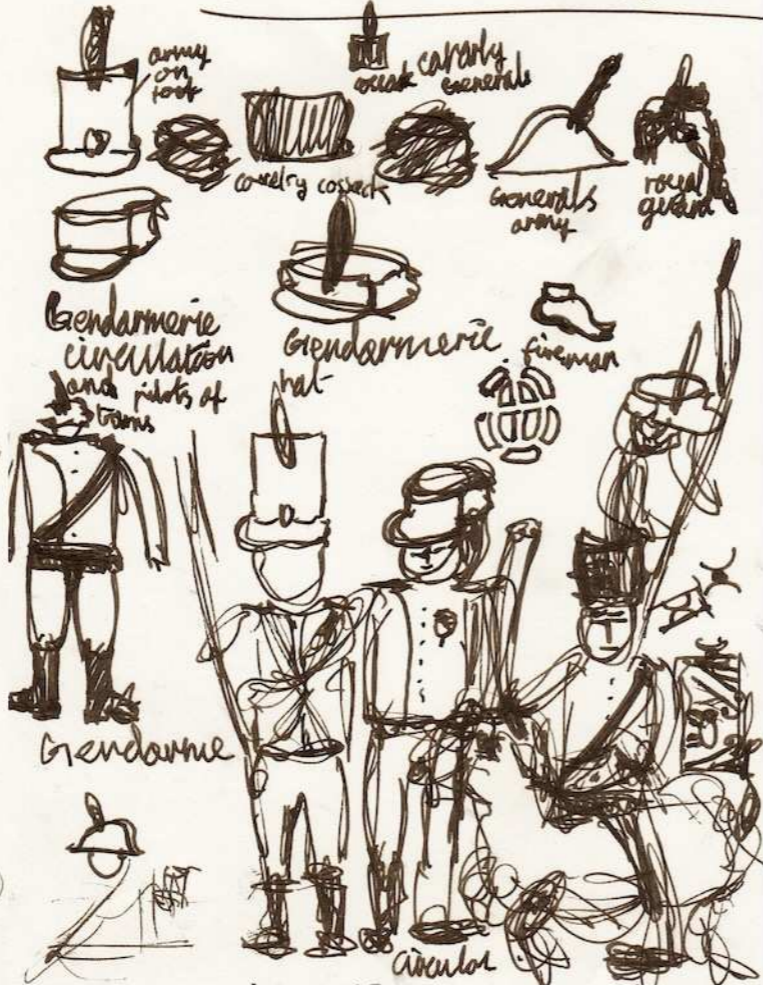 army
on
foot
cavarly
Generals
cavelry cossack
Generals
army
royal
guard
Gendarmerie
circulation
and pilots of
trams
Gendarmerie
hat
fireman
Gendarme
circular